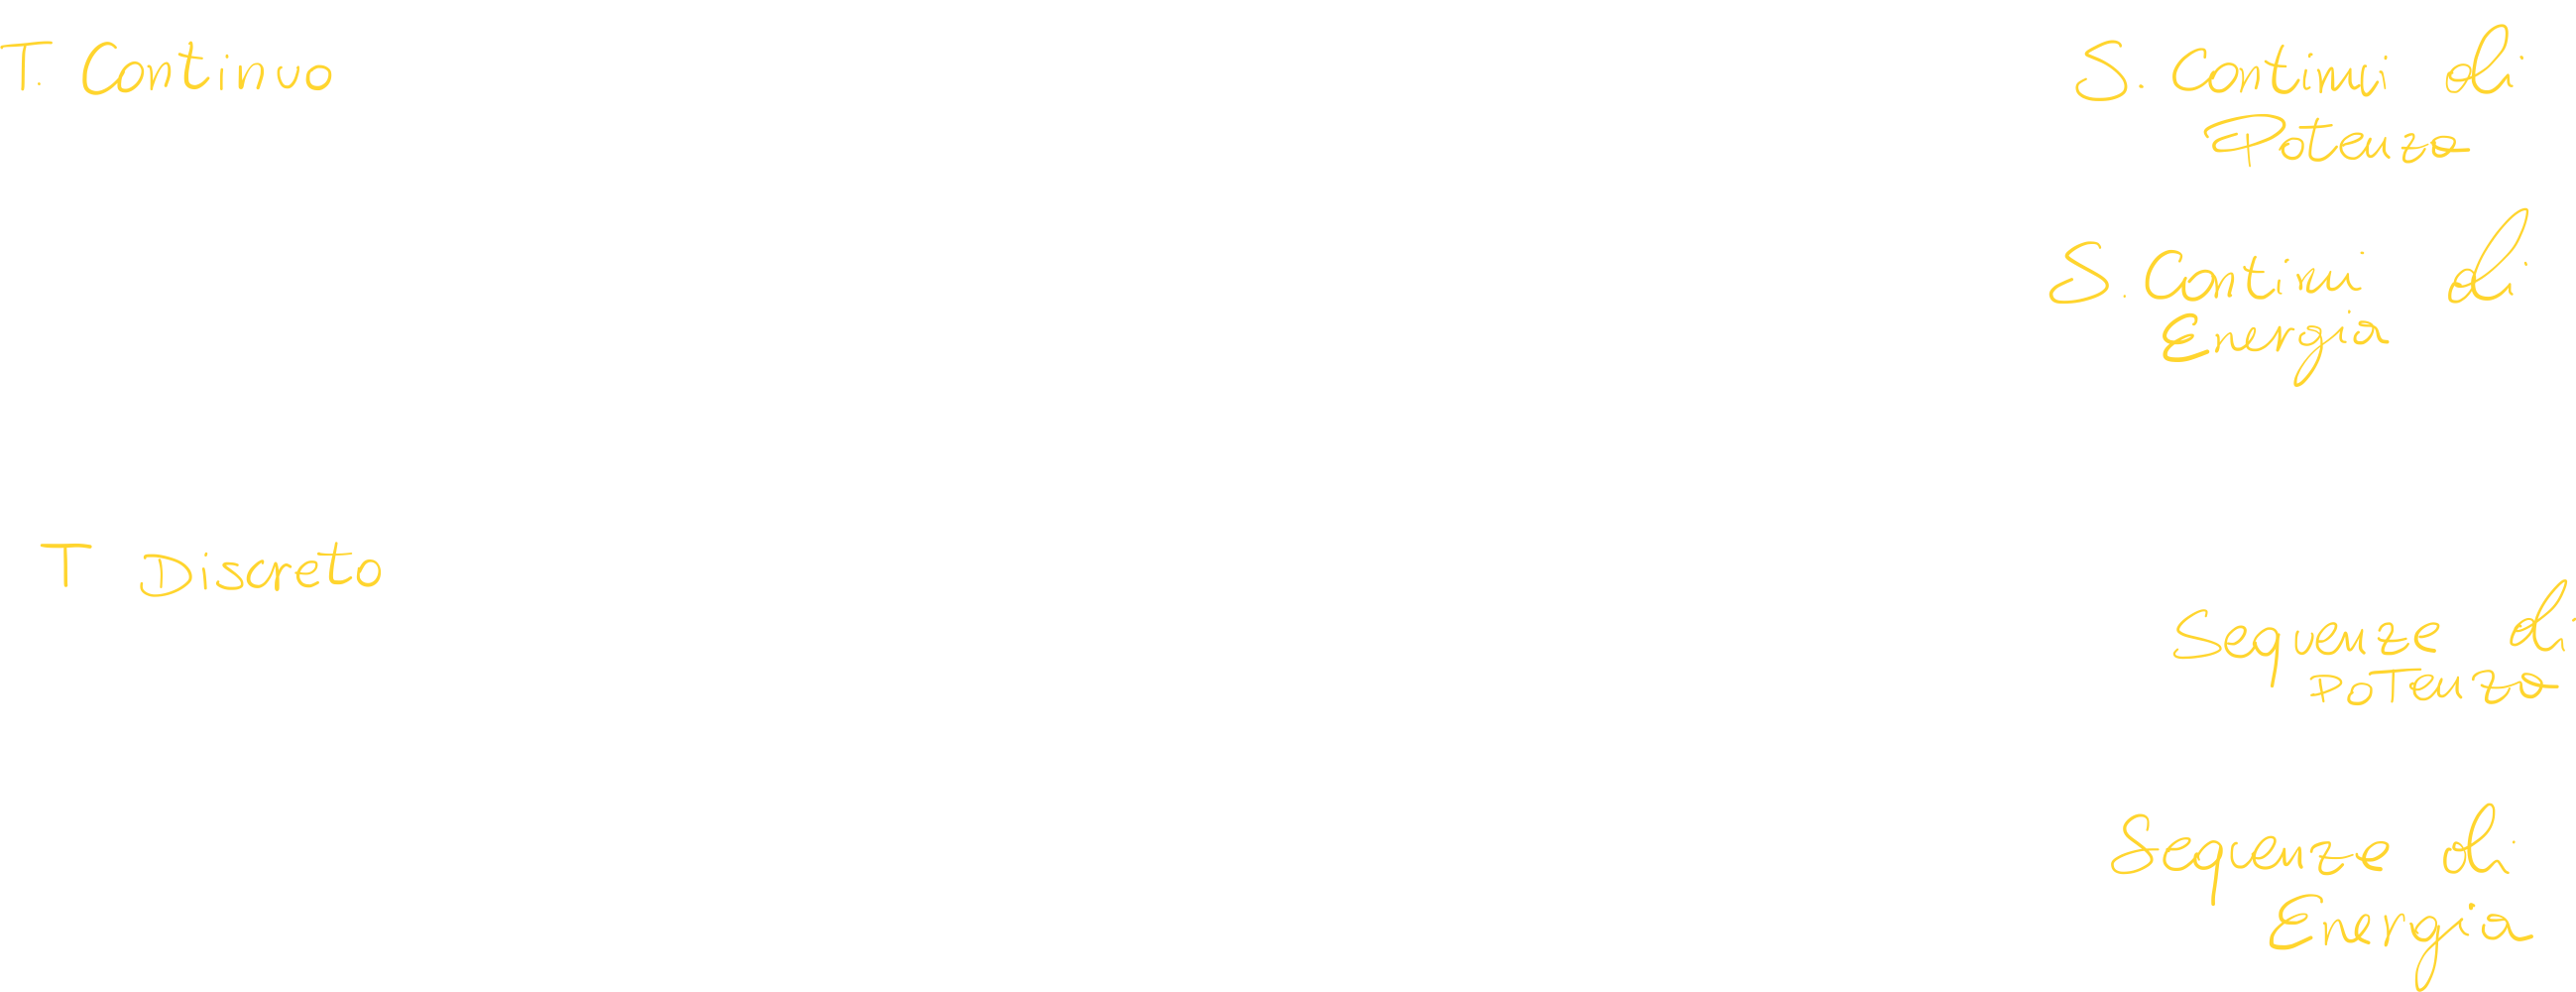 T. Continuo
S. Continui di
Potenza
S. Continui di
Energia
T Discreto
Sequenze di
POTenza
Sequenze di
Energia